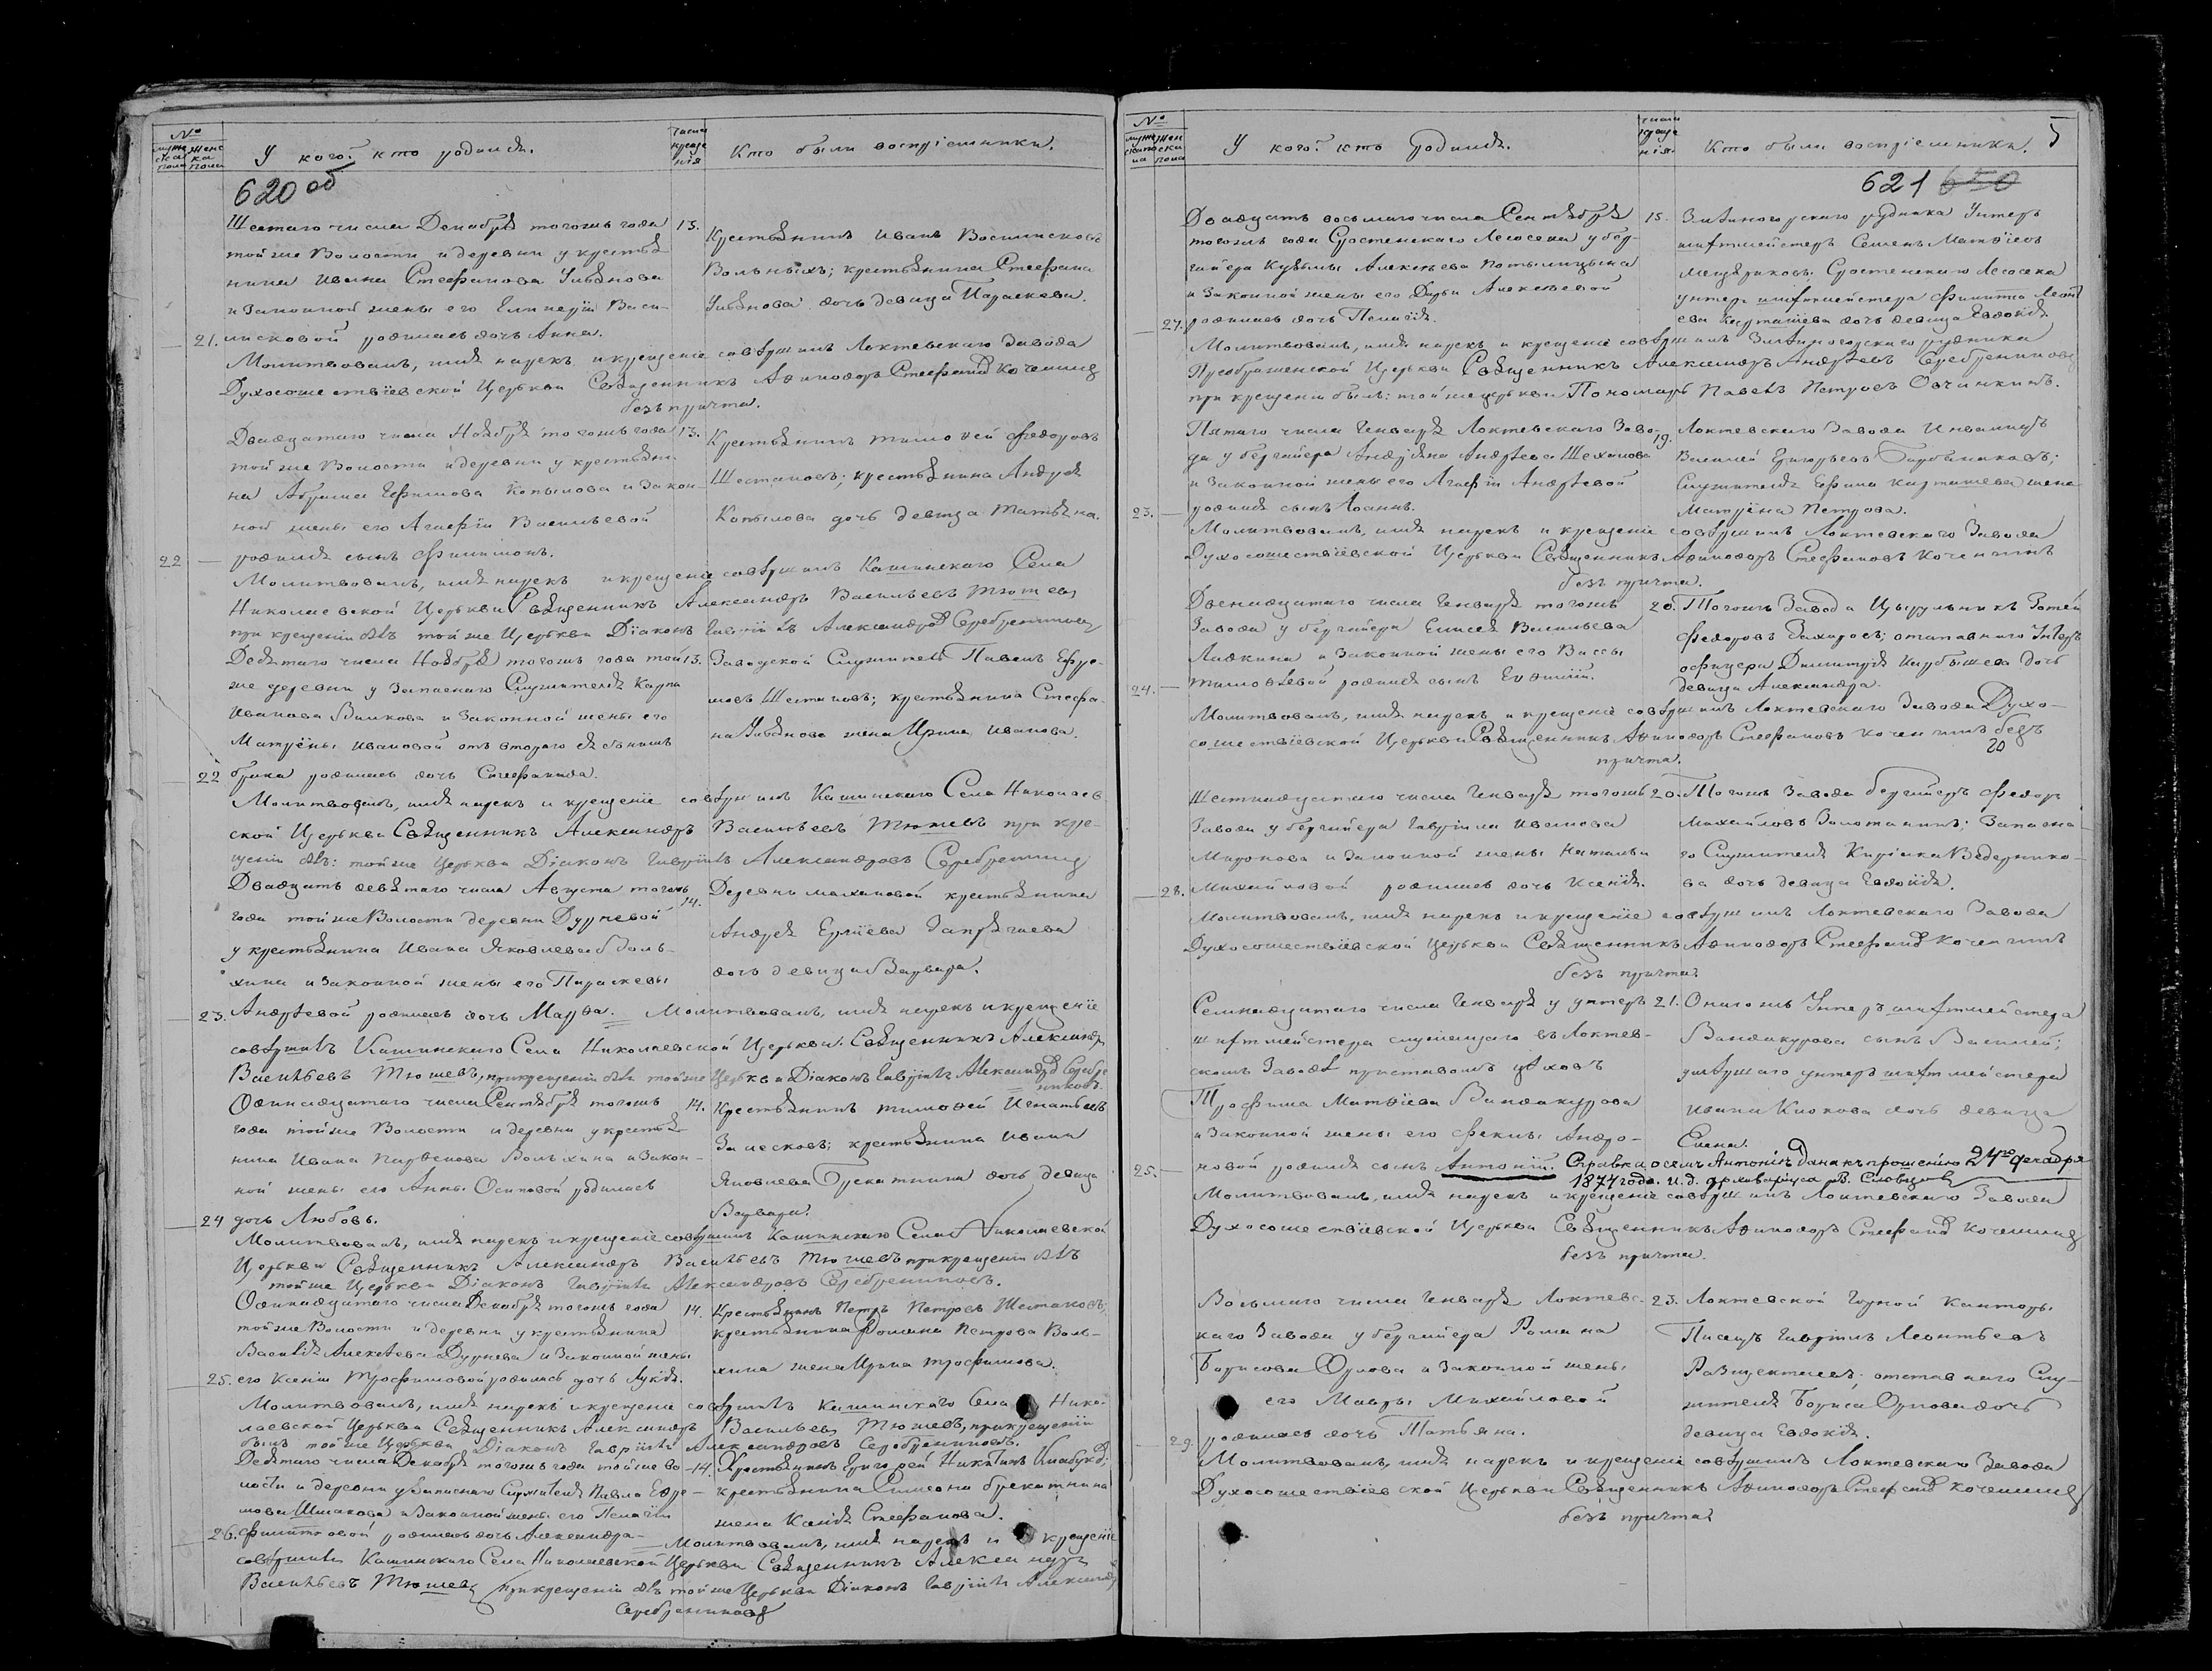 №
мужеска пола
женска пола
У кого? кто родился.
числа крещенія
Кто были воспріемники.
620 об
Шестаго числа Декабря тогожъ года
тойже Волости и деревни у крестья
нина Ивана Стефанова Ульянова
и Законной жены его Васи-
21. лисковой родилась дочь Анна.
13.
Крестьянинъ Иванъ Василисковъ
Вольныхъ; крестьянина Стефана
Ульянова дочь девица Параскева.
Молитвовалъ, имя нарекъ и крещеніе совѣршилъ Локтевскаго Завода
Духосошествіевской Церькви Священникъ Аѳиподоръ Стефановъ Коченгинъ
безъ причта.
Двадцатаго числа Ноября тогожъ года
тойже Волости и деревни у крестьяни
на Абрама Ефимова Копылова и Закон-
ной жены его Агафіи Васильевой
22 — родился сынъ Филимонъ.
13.
Крестьянинъ Тимоѳей Федоровъ
Шестаковъ; крестьянина Андрея
Копылова дочь девица Татьяна.
Молитвовалъ, имя нарекъ и крещеніе совѣршилъ Кашинскаго Села
Николаевской Церькви Священникъ Александръ Васильевъ Тюшевъ
при крещеніи былъ тойже Церькви Діаконъ Гавріилъ Александровъ Серебренниковъ
Девятаго числа Ноября тогожъ года той
же деревни у Запаснаго Служителя Карпа
Иванова Волкова и Законной жены его
Матрёны Ивановой отъ втораго ея бывшаго
22 брака родилась дочь Стефанида.
13.
Заводской Служитель Павелъ Ефре-
мовъ Шестаковъ; крестьянина Стефа-
на Ульянова жена Ирина Иванова.
Молитвовалъ, имя нарекъ и крещеніе совѣршилъ Кашинскаго Села Николаев
ской Церькви Священникъ Александръ Васильевъ Тюшевъ при кре-
щеніи былъ: тойже Церькви Діаконъ Гавріилъ Александровъ Серебренниковъ
Двадцать девятаго числа Августа тогожъ
года тойже Волости деревни Дурневой
у крестьянина Ивана Яковлева Воль-
хина и Законной жены его Параскевы
14.
Деревни крестьянина
Андрея
дочь девица Варвара.
23. Андреевой родилась дочь Марѳа. Молитвовалъ, имя нарекъ и крещеніе
совѣршилъ Кашинскаго Села Николаевской Церькви: Священникъ Александръ
Васильевъ Тюшевъ, при крещеніи былъ тойже Церькви Діаконъ Гавріилъ Александровъ Серебренниковъ.
Одинадцатаго числа Сентября тогожъ
года тойже Волости и деревни у крестья-
нина Ивана Парѳенова Вольхина и Закон-
ной жены его Анны Осиповой родилась
24 дочь Любовь.
14.
Крестьянинъ Тимоѳей Игнатьевъ
Залесковъ; крестьянина Ивана
Яковлева дочь девица
Варвара.
Молитвовалъ, имя нарекъ и крещеніе совѣршилъ Кашинскаго Села Николаевской
Церькви Священникъ Александръ Васильевъ Тюшевъ при крещеніи былъ
тойже Церькви Діаконъ Гавріилъ Александровъ Серебренниковъ.
Одинадцатаго числа Декабря тогожъ года
тойже Волости и деревни у крестьянина
Василія Алексѣева Дурнева и Законной жены
25. его Ксеніи Трофимовой родилась дочь Лукія.
14.
Крестьянинъ Петръ Петровъ Шестаковъ;
крестьянина Романа Петрова Воль-
хина жена Ирина Трофимова.
Молитвовалъ, имя нарекъ и крещеніе совѣршилъ Кашинскаго Села Нико-
лаевской Церькви Священникъ Александръ Васильевъ Тюшевъ, при крещеніи
былъ тойже Церькви Діаконъ Гавріилъ Александровъ Серебренниковъ.
Девятаго числа Декабря тогожъ года тойже во-
лости и деревни у Запаснаго Служителя Павла Ефре-
мова и Законной жены его Пелагіи
26. Филиповой родилась дочь Александра.
14.
Крестьянинъ Григорей Никитинъ
крестьянина Симеона
жена Ксенія Стефанова.
Молитвовалъ, имя нарекъ и крещеніе
совѣршилъ Кашинскаго Села Николаевской Церькви Священникъ Александръ
Васильевъ Тюшевъ при крещеніи былъ тойже Церькви Діаконъ Гавріилъ Александровъ
Серебренниковъ
№
мужеска пола
женска пола
У кого? кто родился.
числа крещенія.
Кто были воспріемники.
5
621 650
Двадцать восьмаго числа Сентября
тогожъ года Сростенскаго Лесосека у бер-
гайера Кузьмы Алексеева Потылицына
и Законной жены его Дарьи Алексеевой
27. родилась дочь Пелагія.
15.
Змѣиногорскаго рудника Унтеръ
шифтмейстеръ Семенъ Матвѣевъ
Мещеряковъ. Сростенскаго Лесосека
унтеръ шифтмейстера Филипа
Карташева дочь девица Евдокія.
Молитвовалъ, имя нарекъ и крещеніе совѣршилъ Змѣиногорскаго рудника
Преображенской Церькви Священникъ Александръ Андреевъ Серебренниковъ
при крещеніи былъ: тойже церькви Пономарь Павелъ Петровъ Овчинкинъ.
Пятаго числа Генваря Локтевскаго Заво-
да у бергайера Андреяна Андреева Шехалова
и Законной жены его Агафіи Андреевой
23. — родился сынъ Іоаннъ.
19.
Локтевскаго Завода Инвалидъ
Василей Григорьевъ
Служителя Ефима Карташева жена
Матрёна Петрова.
Молитвовалъ, имя нарекъ и крещеніе совѣршилъ Локтевскаго Завода
Духосошествіевской Церькви Священникъ Аѳиподоръ Стефановъ Коченгинъ
безъ причта.
Двенадцатаго числа Генваря тогожъ
Завода у бергайера Елисея Васильева
Лямкина и Законной жены его Вассы
24. — Тимоѳеевой родился сынъ Евѳимій.
20.
Тогожъ Завода Цырульникъ Фотей
Федоровъ Захаровъ; отставнаго Унтеръ
офицера Димитрія Карбышева дочь
девица Александра.
Молитвовалъ, имя нарекъ и крещеніе совѣршилъ Локтевскаго Завода Духо-
сошествіевской Церькви Священникъ Аѳиподоръ Стефановъ Коченгинъ безъ
20
причта.
Шестнадцатаго числа Генваря тогожъ
Завода у бергайера Гавріила Иванова
Миронова и Законной жены Натальи
28. Михайловой родилась дочь Ксенія.
20.
Тогожъ Завода бергайеръ Федоръ
Михайловъ Золотанинъ; Запасна-
го Служителя Кирилка Ведернико-
ва дочь девица Евдокія.
Молитвовалъ, имя нарекъ и крещеніе совѣршилъ Локтевскаго Завода
Духосошествіевской Церькви Священникъ Аѳиподоръ Стефановъ Коченгинъ
безъ причта
Семнадцатаго числа Генваря у унтеръ
шифтмейстера служащаго въ Локтев-
скомъ Заводѣ приставомъ цѣховъ
Трофима Матвѣева Вандакурова
и Законной жены его Феклы Андро-
25. — новой родился сынъ Антоній.
21.
Онагожъ Унтеръ шифтмейстера
Вандакурова сынъ Василей;
умѣршаго унтеръ шифтмейстера
Ивана Клюкова дочь девица
Елена.
Справка о семъ Антоніѣ дана къ прошенію 24го декабря
1874 года. и. д. архиваріуса Словцовъ
Молитвовалъ, имя нарекъ и крещеніе совѣршилъ Локтевскаго Завода
Духосошествіевской Церькви Священникъ Аѳиподоръ Стефановъ Коченгинъ
безъ причта.
Восьмаго числа Генваря Локтевс-
каго Завода у бергайера Романа
Борисова Орлова и Законной жены
его Мавры Михайловой
29. родилась дочь Татьяна.
23.
Локтевской Горной Канторы
Писецъ Гавріилъ Леонтьевъ
отставнаго Слу-
жителя Бориса Орлова дочь
девица Евдокія.
Молитвовалъ, имя нарекъ и крещеніе совѣршилъ Локтевскаго Завода
Духосошествіевской Церькви Священникъ Аѳиподоръ Стефановъ Коченгинъ
безъ причта